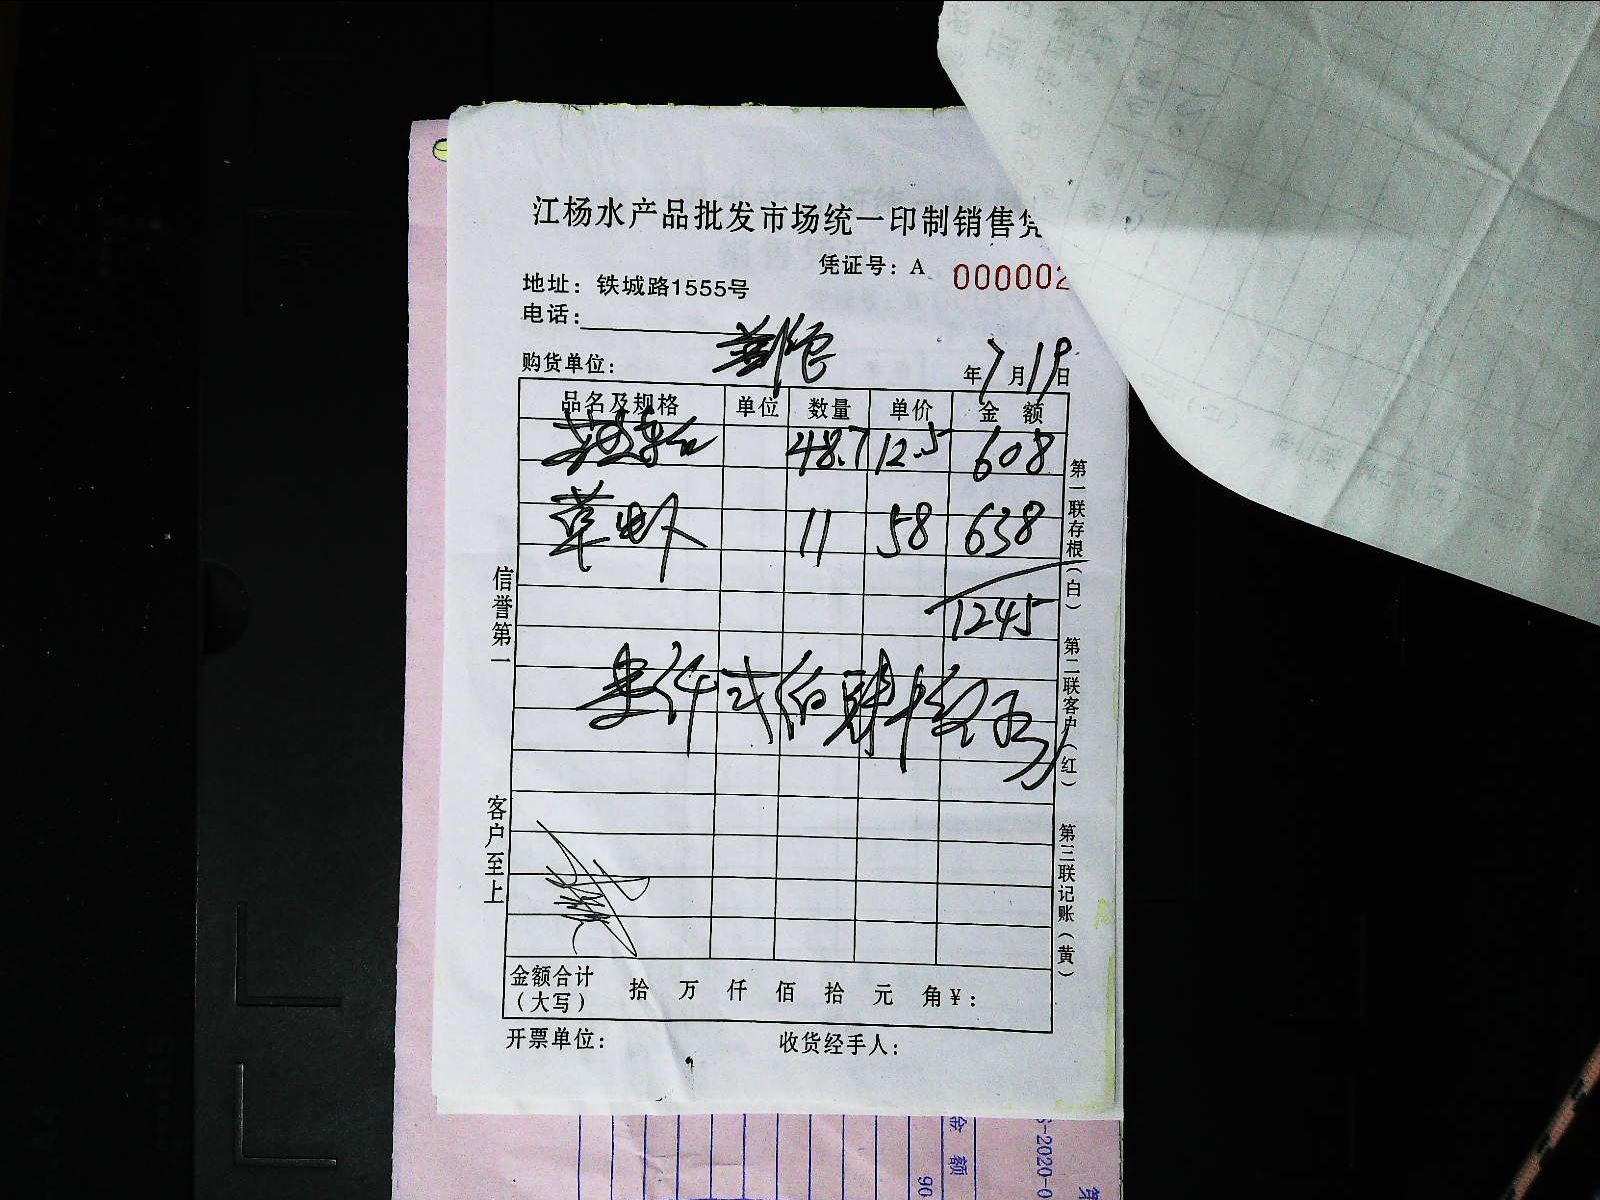 江杨水产品批发市场统一印制销售凭
凭证号：A 000002
地址：铁城路1555号
电话：
购货单位： 年7月19日
品名及规格 单位 数量 单价 金额
48.7 12.5 608
草虾 11 58 638
1245
壹仟弍佰肆拾伍
信誉第一
客户至上
第一联存根（白）
第二联客户（红）
第三联记账（黄）
金额合计（大写） 拾 万 仟 佰 拾 元 角 ¥：
开票单位： 收货经手人：
金额
90